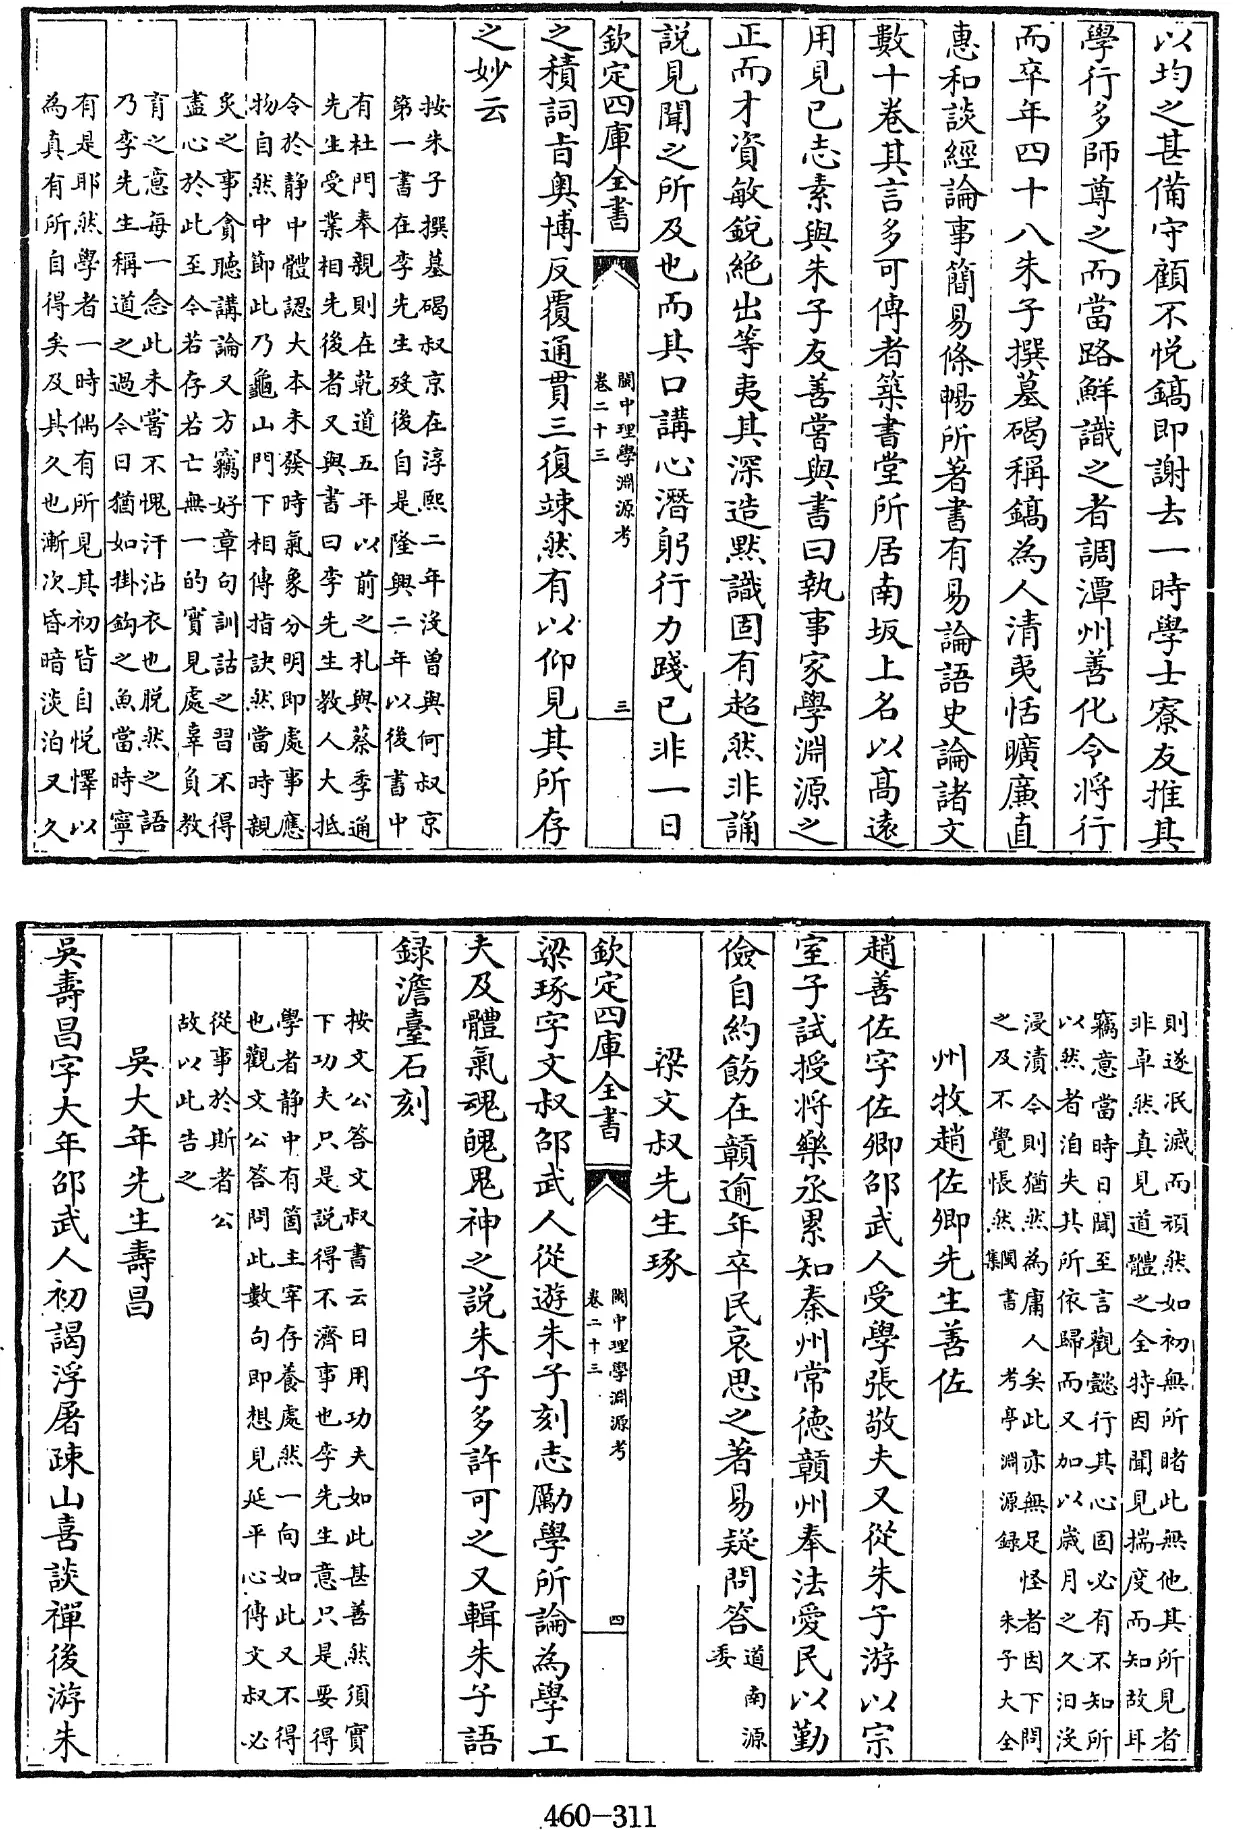 以均之甚備守顧不悅鎬即謝去一時學士寮友推其
學行多師尊之而當路鮮識之者調潭州善化令將行
而卒年四十八朱子撰墓碣稱鎬為人清夷恬曠廉直
惠和談經論事簡易條暢所著書有易論語史論諸文
數十卷其言多可傳者築書堂所居南坂上名以高遠
用見已志素與朱子友善嘗與書曰執事家學淵源之
正而才資敏銳絶出等夷其深造黙識固有超然非誦
說見聞之所及也而其口講心潛躬行力踐已非一日
欽定四庫全書
閩中理學淵源考
卷二十三
三
之積詞㫖奥博反覆通貫三復竦然有以仰見其所存
之妙云
按朱子撰墓碣叔京在淳熙二年沒曽與何叔京
第一書在李先生殁後自是隆興二年以後書中
有杜門奉親則在乾道五年以前之札與蔡季通
先生受業相先後者又與書曰李先生教人大抵
令於静中體認大本未發時氣象分明即處事應
物自然中節此乃龜山門下相傳指訣然當時親
炙之事貪聽講論又方竊好章句訓詁之習不得
盡心於此至今若存若亡無一的實見處辜負教
育之意每一念此未嘗不愧汗沾衣也脱然之語
乃李先生稱道之過今日猶如掛鈎之魚當時寧
有是耶然學者一時偶有所見其初皆自悅懌以
為真有所自得矣及其久也漸次昏暗淡泊又久
則遂泯滅而頑然如初無所睹此無他其所見者
非卓然真見道體之全特因聞見揣度而知故耳
竊意當時日聞至言觀懿行其心固必有不知所
以然者洎失其所依歸而又加以歲月之久汨沒
浸漬今則猶然為庸人矣此亦無足怪者因下問
之及不覺悵然 閩書 考亭淵源録 朱子大全集
州牧趙佐卿先生善佐
趙善佐字佐卿邵武人受學張敬夫又從朱子游以宗
室子試授將樂丞累知秦州常德贛州奉法愛民以勤
儉自約飭在贛逾年卒民哀思之著易疑問答 道南源委
梁文叔先生琢
欽定四庫全書
閩中理學淵源考
卷二十三
四
梁琢字文叔邵武人從遊朱子刻志勵學所論為學工
夫及體氣魂魄鬼神之說朱子多許可之又輯朱子語
録澹臺石刻
按文公答文叔書云日用功夫如此甚善然須實
下功夫只是說得不濟事也李先生意只是要得
學者静中有箇主宰存養處然一向如此又不得
也觀文公答問此數句即想見延平心傳文叔必
從事於斯者公
故以此告之
吳大年先生壽昌
吳壽昌字大年邵武人初謁浮屠疎山喜談禪後游朱
460-311